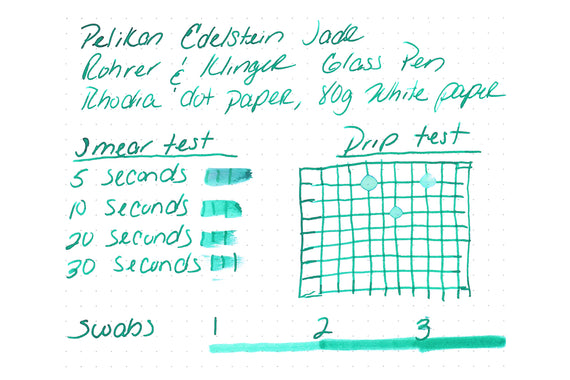 Pelikan Edelstein Jade
Rohrer & Klinger Glass Pen
Rhodia dot paper, 80g White paper
Smear test
5 seconds
10 seconds
20 seconds
30 seconds
Drip test
Swabs 1 2 3